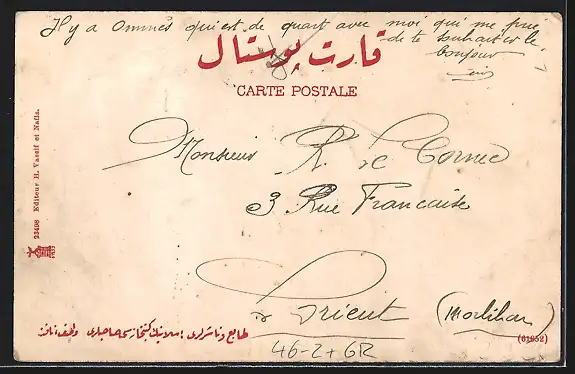 Il y a Omnnès qui est de quart avec moi qui me prie
de te souhaiter le
bonjour
قارت پوستال
CARTE POSTALE
Monsieur R. Le Cornec
3 Rue Francaise
à Lorient (Morbihan)
23498 Editeur H. Vassif et Nafis.
طابع و ناشرلری
(61952)
46-2+6R